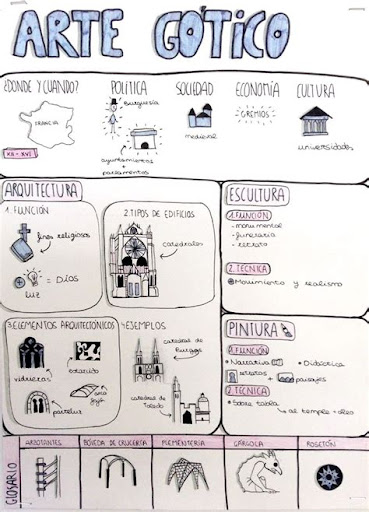 ARTE GÓTICO
¿DONDE Y CUANDO?
FRANCIA
XII - XVI
POLÍTICA
burguesía
ayuntamientos
+
parlamentos
SOCIEDAD
medieval
ECONOMÍA
GREMIOS
CULTURA
universidades
ARQUITECTURA
1. FUNCIÓN
fines religiosos
+
= Dios
luz
2. TIPOS DE EDIFICIOS
catedrales
3. ELEMENTOS ARQUITECTÓNICOS
vidrieras
parteluz
EJEMPLOS
catedral de
Burgos
catedral de
Toledo
ESCULTURA
1. FUNCIÓN
- monumental
- funeraria
- retrato
2. TECNICA
Movimiento y realismo
PINTURA
1. FUNCIÓN
• Narrativa
• Didáctica
retratos
+
paisajes
2. TECNICA
• Sobre tabla
al temple + oleo
GLOSARIO
ARBOTANTES
BÓVEDA DE CRUCERÍA
PLEMENTERIA
GÁRGOLA
ROSETÓN